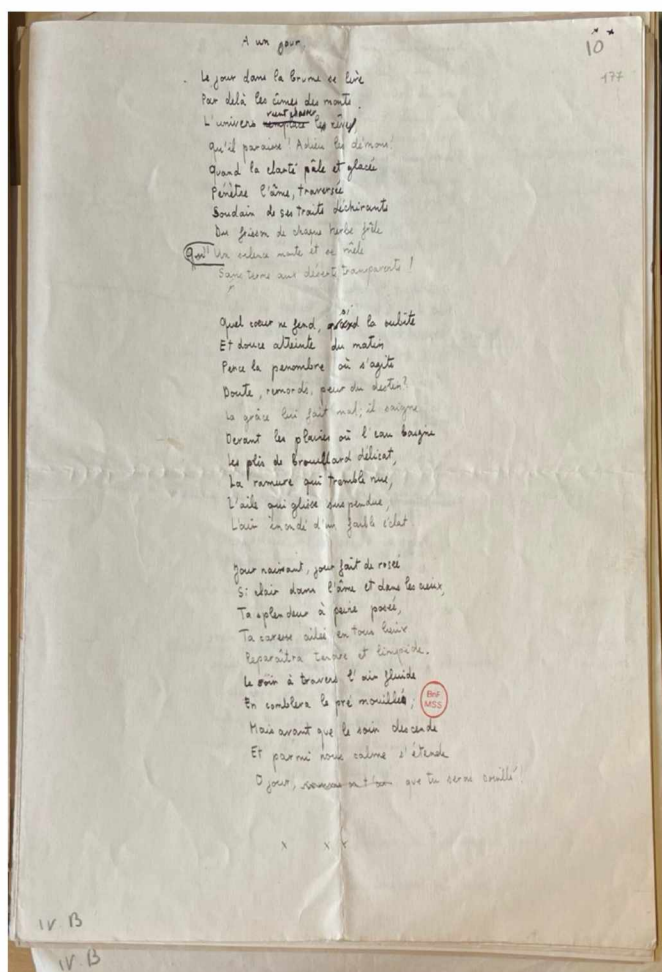 10
177
A un jour,
Le jour dans la brume se lève
Par delà les cimes des monts.
vient chasser
L'univers remplace les rêves
Qu'il paraisse ! Adieu les démons !
Quand la clarté pâle et glacée
Pénètre l'âme, traversée
Soudain de ses traits déchirants
Du frisson de chaque herbe frêle
Qu' Un silence monte et se mêle
Sans terme aux déserts transparents !
si
Quel cœur ne fend, la subite
Et douce atteinte du matin
Perce la pénombre où s'agite
Doute, remords, peur du destin ?
La grâce lui fait mal ; il saigne
Devant les plaines où l'eau baigne
Les plis de brouillard délicat,
La ramure qui tremble nue,
L'aile qui glisse suspendue,
L'air d'un faible éclat
Jour naissant, jour fait de rosée
Si clair dans l'âme et dans les cieux,
Ta splendeur à peine posée,
Ta caresse ailée en tous lieux
Reparaîtra tendre et limpide.
Le soir à travers l'air fluide
En comblera le pré mouillé ;
BnF
MSS
Mais avant que le soir descende
Et parmi nous calme s'étende
O jour, que tu seras souillé !
x x x
IV. B
IV. B